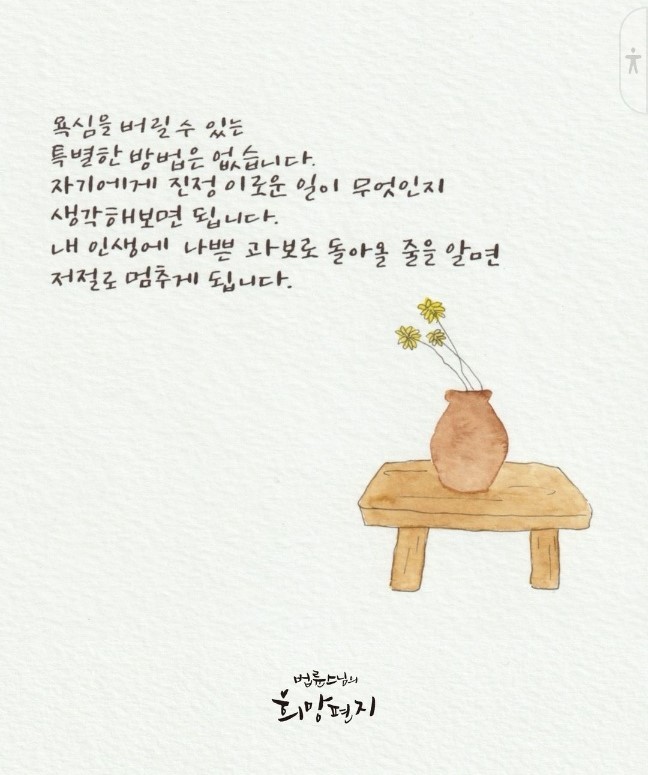 욕심을 버릴 수 있는
특별한 방법은 없습니다.
자기에게 진정 이로운 일이 무엇인지
생각해보면 됩니다.
내 인생에 나쁜 과보로 돌아올 줄을 알면
저절로 멈추게 됩니다.
법륜스님의
희망편지